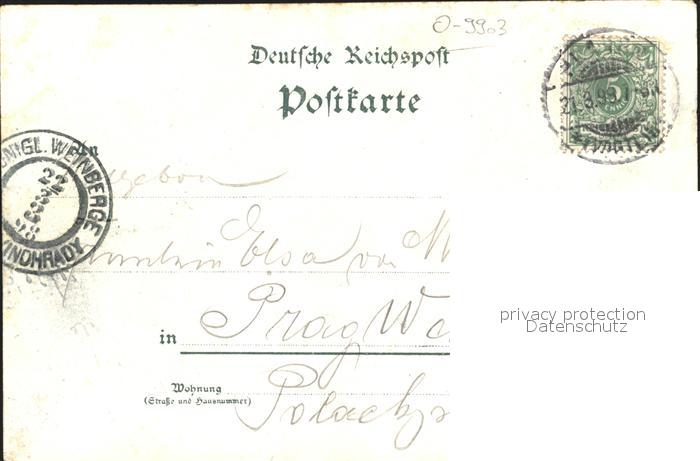 0-9903
Deutsche Reichspost
Postkarte
21.3.98
5
An
KÖNIGL. WEINBERGE
22
3
98
VINOHRADY
Fräulein Elsa von
in Prag We
Wohnung
(Straße und Hausnummer)
Polack
privacy protection
Datenschutz